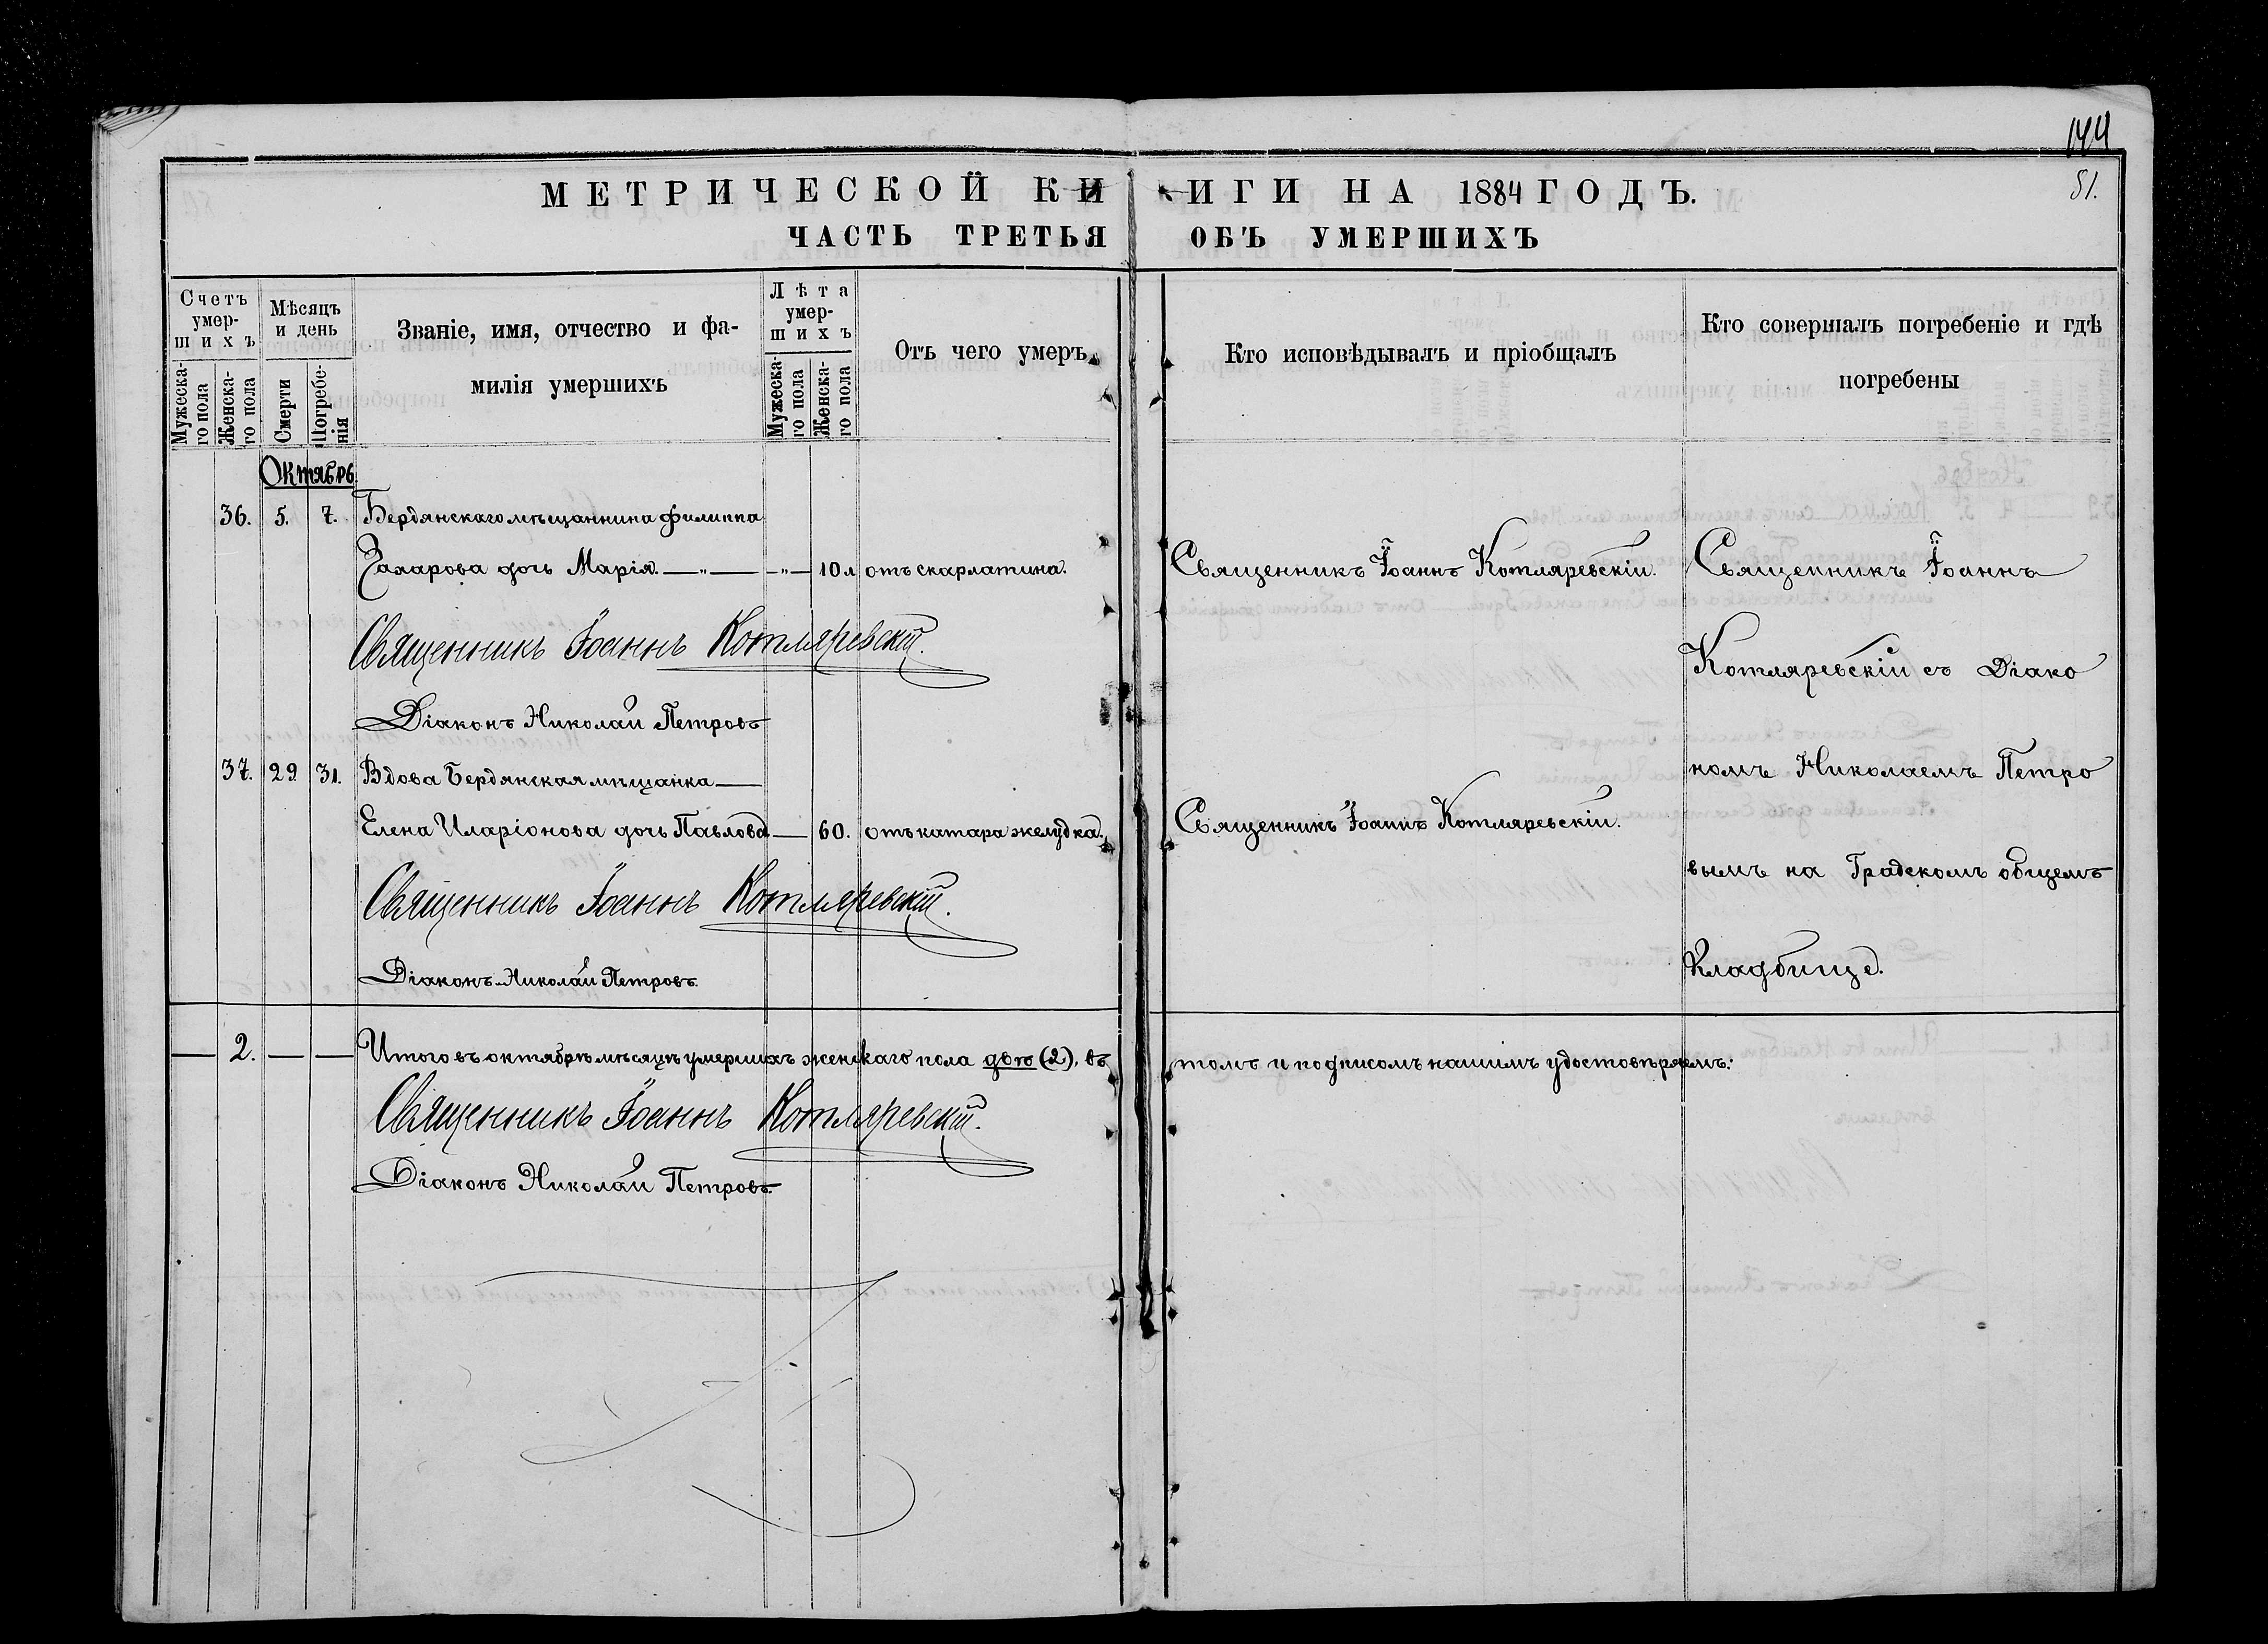 144
51.
МЕТРИЧЕСКОЙ КНИГИ НА 1884 ГОДЪ.
ЧАСТЬ ТРЕТЬЯ ОБЪ УМЕРШИХЪ
Счетъ умер-
шихъ
Мужеска-
го пола
Женска-
го пола
Мѣсяцъ
и день
Смерти
Погребе-
нія
Званіе, имя, отчество и фа-
милія умершихъ
Лѣта
умер-
шихъ
Мужеска-
го пола
Женска-
го пола
Отъ чего умеръ
Кто исповѣдывалъ и пріобщалъ
Кто совершалъ погребеніе и гдѣ
погребены
Октябрь
36. 5. 7. Бердянскаго мѣщаннина Филиппа
Захарова дочь Марія. — „ — — „ — 10 л отъ скарлатина. Священникъ Іоаннъ Котляревскій. Священникъ Іоаннъ
Священникъ Іоаннъ Котляревскій.
Котляревскій съ Діако
Діаконъ Николай Петровъ
37. 29 31. Вдова Бердянская мѣщанка —
номъ Николаемъ Петро
Елена Иларіонова дочь Павлова — 60. отъ катара желудка. Священникъ Іоаннъ Котляревскій.
вымъ на Градскомъ общемъ
Священникъ Іоаннъ Котляревскій.
Діаконъ Николай Петровъ.
Кладбищѣ.
— 2. — — Итого въ октябрѣ мѣсяцѣ умершихъ женскаго пола двѣ (2), въ томъ и подписомъ нашимъ удостовѣряемъ:
Священникъ Іоаннъ Котляревскій.
Діаконъ Николай Петровъ.